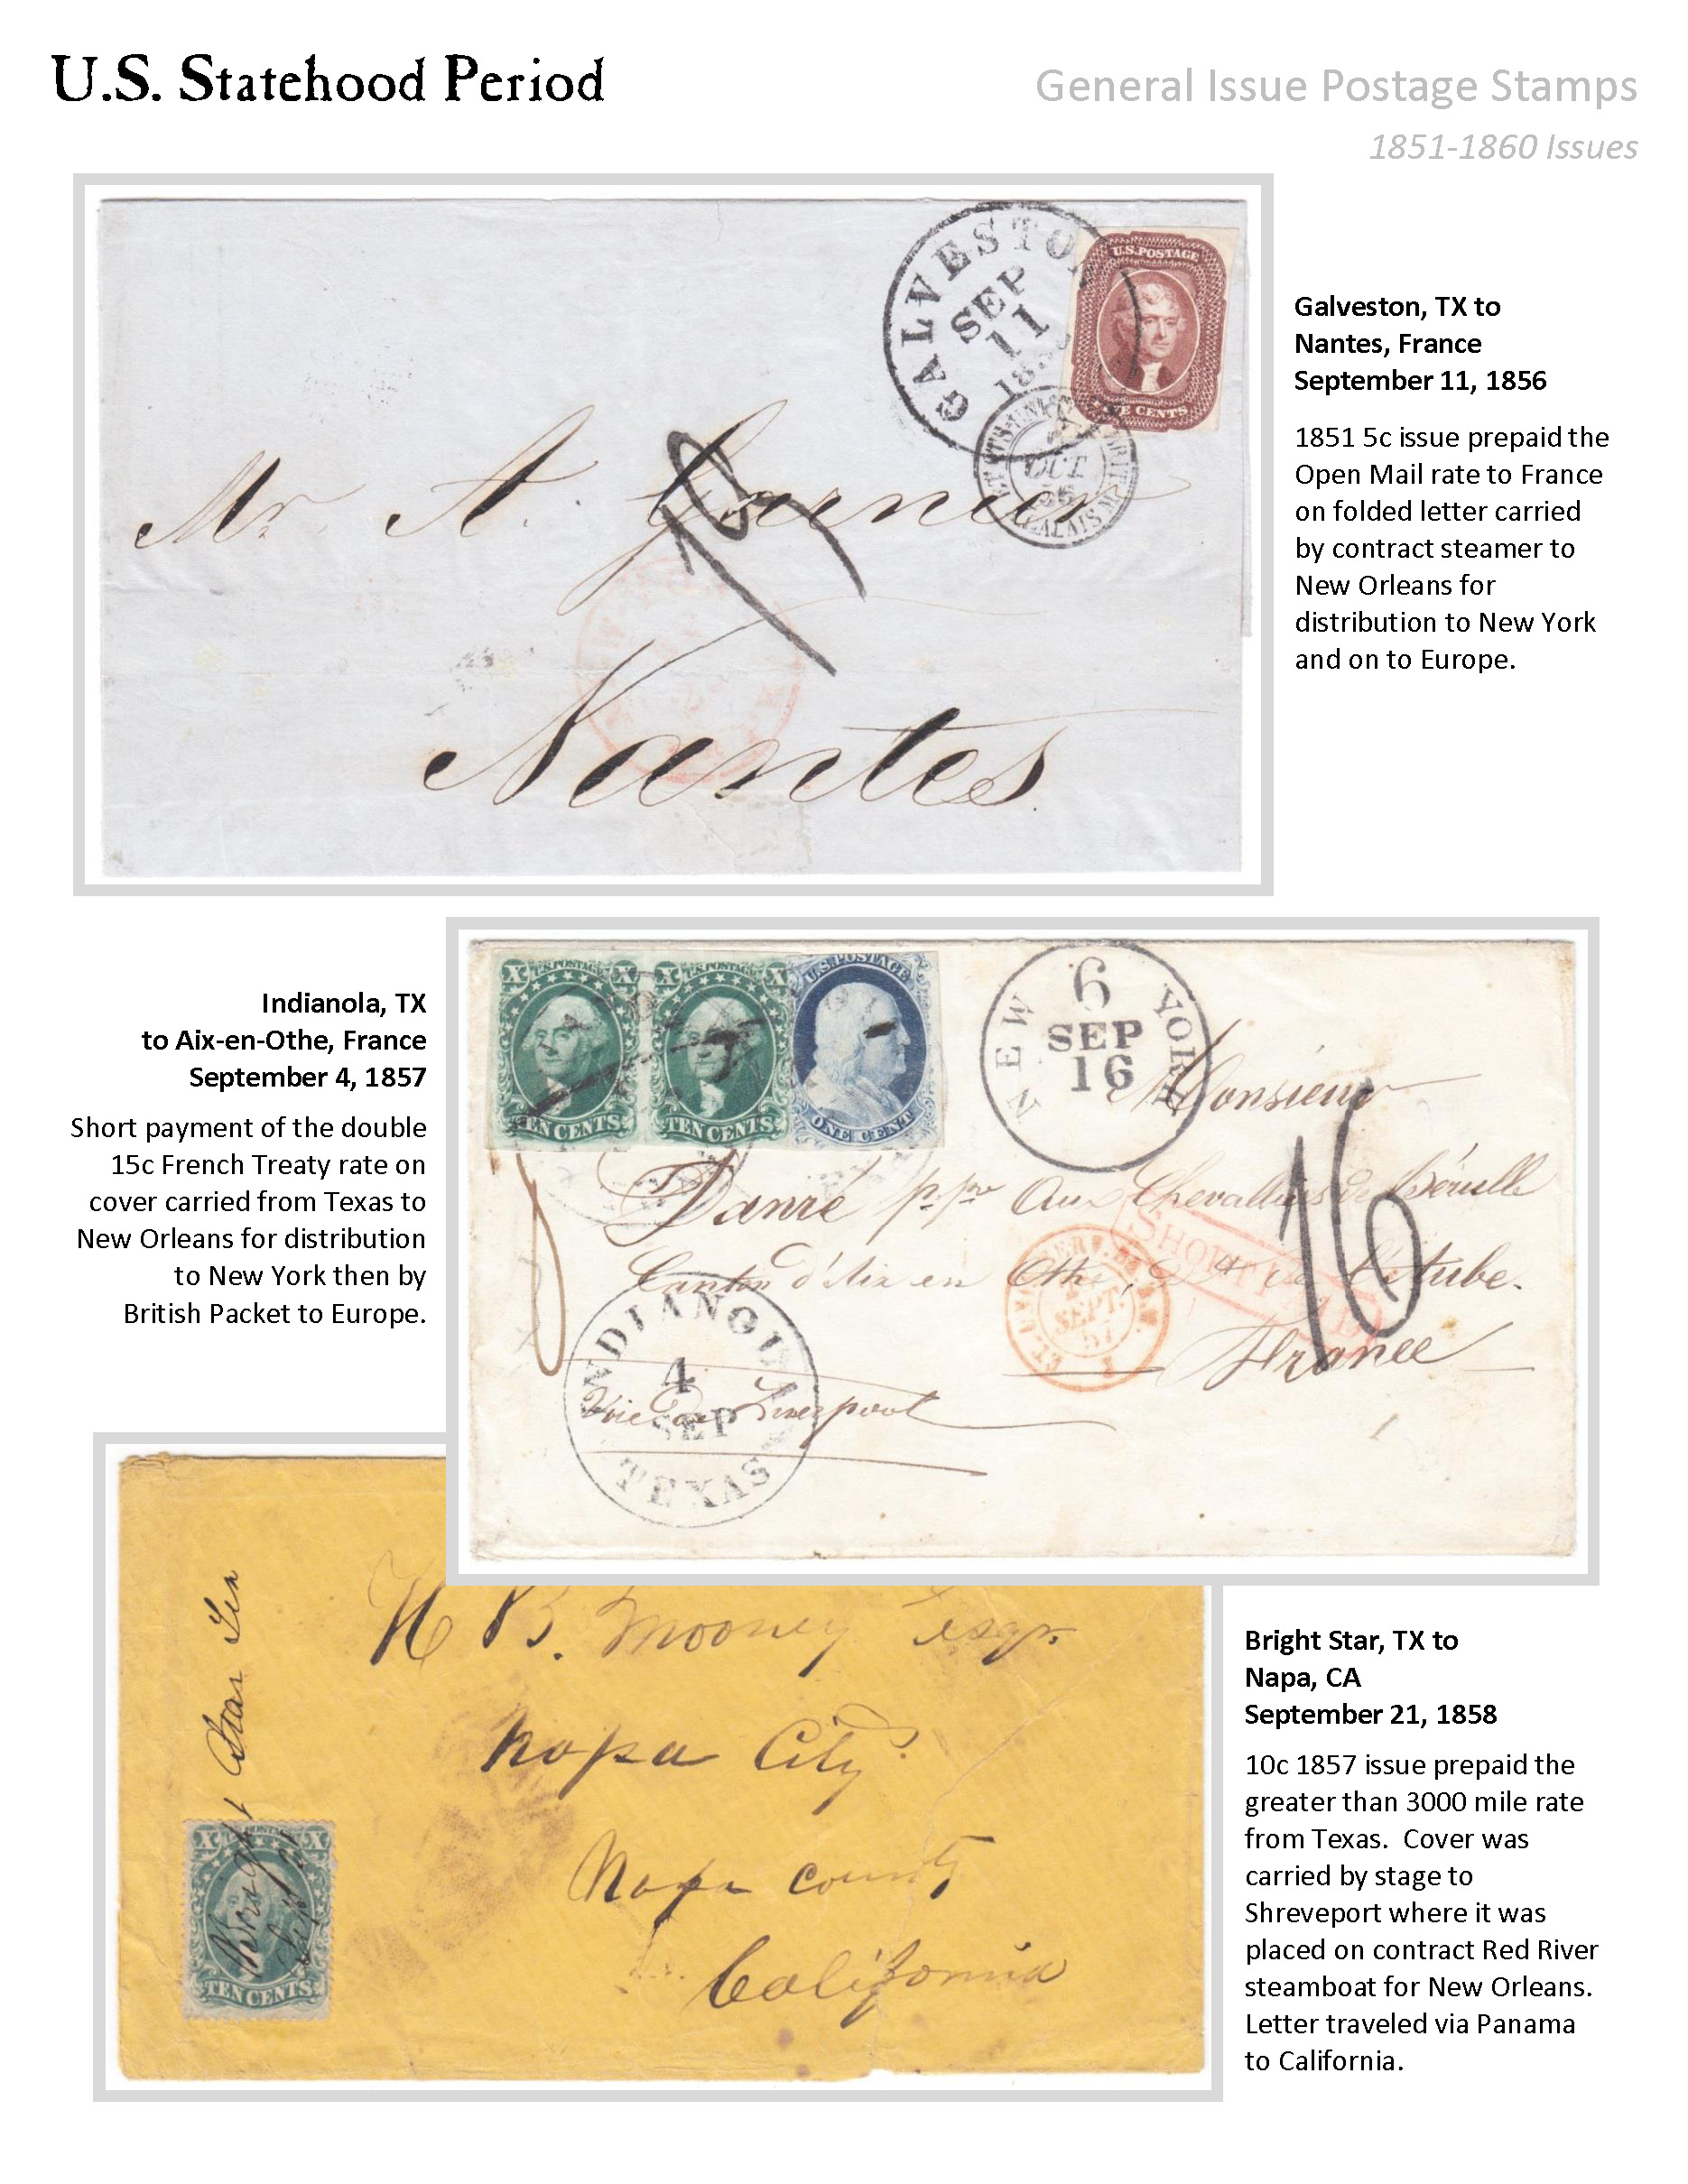 U.S. Statehood Period
General Issue Postage Stamps
1851-1860 Issues
GALVESTON
SEP
11
U.S. POSTAGE
FIVE CENTS
OCT
56
CALAIS
15
Mr. A. Garnier
Nantes
Galveston, TX to
Nantes, France
September 11, 1856
1851 5c issue prepaid the
Open Mail rate to France
on folded letter carried
by contract steamer to
New Orleans for
distribution to New York
and on to Europe.
Indianola, TX
to Aix-en-Othe, France
September 4, 1857
Short payment of the double
15c French Treaty rate on
cover carried from Texas to
New Orleans for distribution
to New York then by
British Packet to Europe.
X U.S. POSTAGE X
TEN CENTS
X U.S. POSTAGE X
TEN CENTS
U.S. POSTAGE
ONE CENT
NEW YORK
6
SEP
16
Monsieur
Danré p. pre Aux Chevalliers de Bérulle
Canton d'Aix en Othe, de l'Aube.
France
Voie de Liverpool
SHORT PAID
16
SEPT.
57
INDIANOLA
4
SEP
TEXAS
Bright Star Tex
H B. Mooney Esqr.
Napa City
Napa County
California
X U.S. POSTAGE X
TEN CENTS
Bright Star, TX to
Napa, CA
September 21, 1858
10c 1857 issue prepaid the
greater than 3000 mile rate
from Texas.  Cover was
carried by stage to
Shreveport where it was
placed on contract Red River
steamboat for New Orleans.
Letter traveled via Panama
to California.